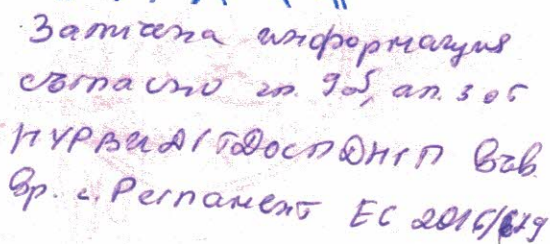 Заличена информация
съгласно чл. 9об, ал. 3 от
НУРВИДГТДОСПДНГП във
вр. с Регламент ЕС 2016/679